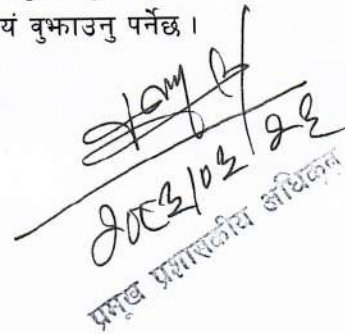 यं वुझाउनु पर्नेछ ।
२०८३/०३/२६
प्रमुख प्रशासकीय अधिकृत